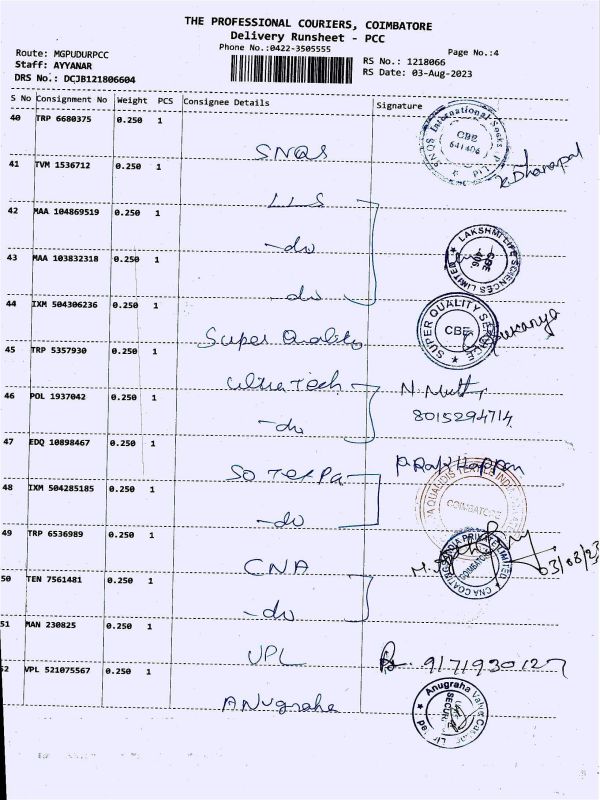 THE PROFESSIONAL COURIERS, COIMBATORE
Delivery Runsheet - PCC
Phone No.:0422-3505555
Page No.:4
Route: MGPUDURPCC
Staff: AYYANAR
DRS No.: DCJB121806604
RS No.: 1218066
RS Date: 03-Aug-2023
S No Consignment No Weight PCS Consignee Details Signature
40 TRP 6680375 0.250 1 SNQS
SNQS International Socks P Ltd CBE 641406
R. Dhanapal
41 TVM 1536712 0.250 1 LLS
42 MAA 104869519 0.250 1 -do
43 MAA 103832318 0.250 1 -do
LAKSHMI LIFE SCIENCES LIMITED CBE
44 IXM 504306236 0.250 1 Super Quality
SUPER QUALITY SERVICE CBE
Sukanya
45 TRP 5357930 0.250 1 Ultra Tech
46 POL 1937042 0.250 1 -do
N. Muthu
8015294714
47 EDQ 10898467 0.250 1 SOTEXPA
48 IXM 504285185 0.250 1 -do
COIMBATORE
49 TRP 6536989 0.250 1 CNA
CNA COATINGS INDIA PRIVATE LIMITED COIMBATORE
03/08/23
50 TEN 7561481 0.250 1 -do
51 MAN 230825 0.250 1 UPL
9171930127
52 VPL 521075567 0.250 1 ANUgraha
Anugraha Valve